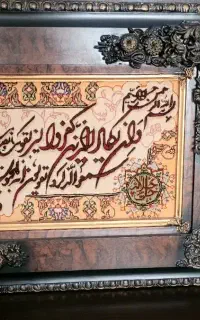 بسم الله الرحمن الرحيم
وان يكاد الذين كفروا ليزلقونك
سمعوا الذكر ويقولون انه لمجنون